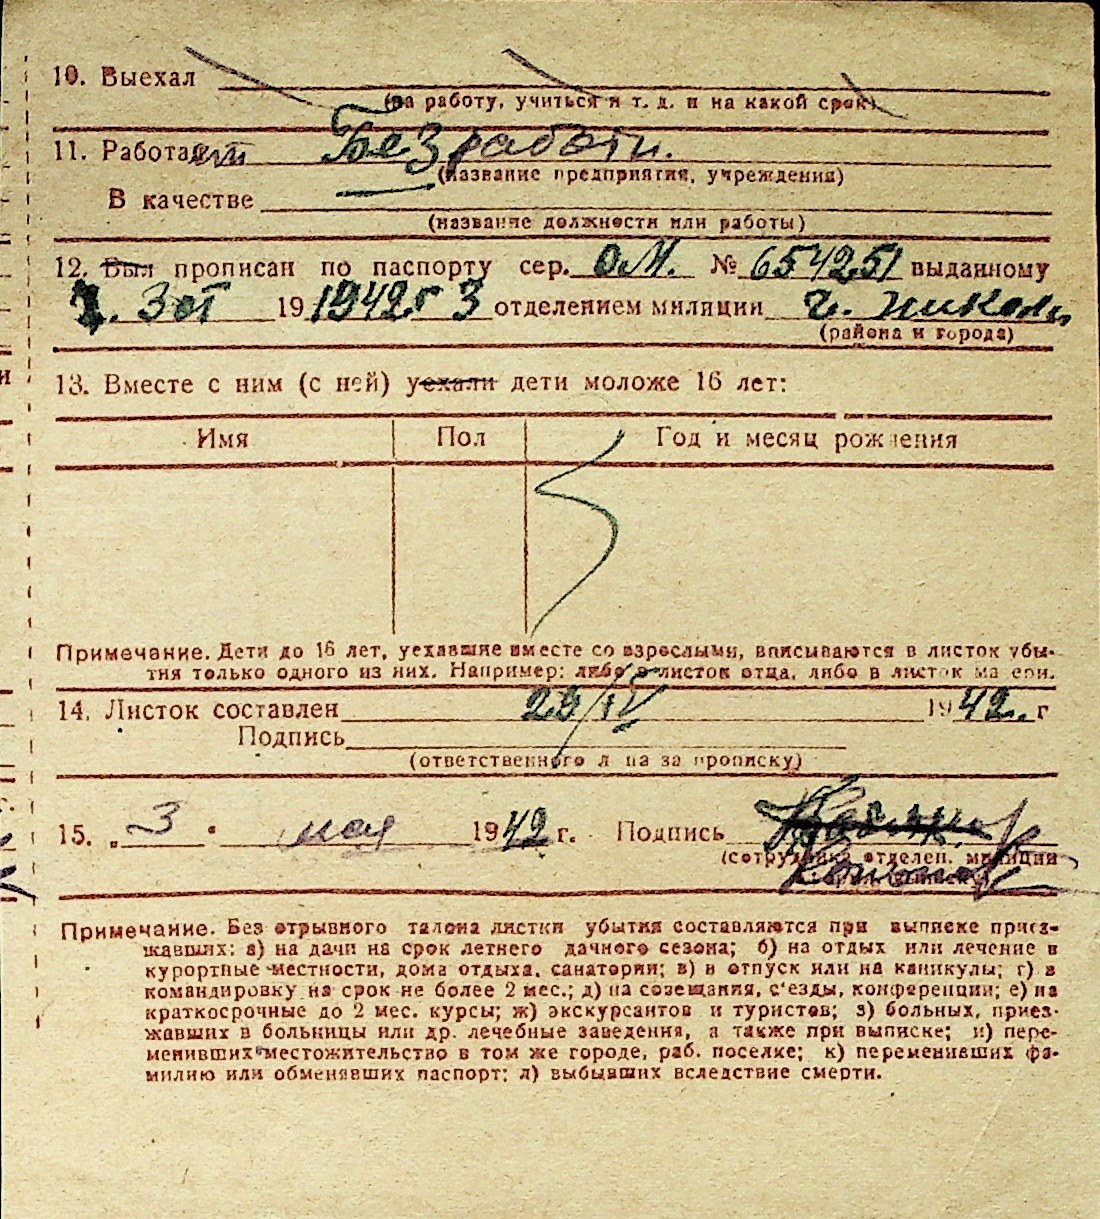 10. Выехал
(на работу, учиться и т. д. и на какой срок)
11. Работает Без работи.
(название предприятия, учреждения)
В качестве
(название должности или работы)
12. Был прописан по паспорту сер. ОМ. № 654251 выданному
19 1942 г 3 отделением милиции г.
(района и города)
13. Вместе с ним (с ней) уехали дети моложе 16 лет:
Имя Пол Год и месяц рождения
Примечание. Дети до 16 лет, уехавшие вместе со взрослыми, вписываются в листок убы-
тия только одного из них. Например: либо в листок отца, либо в листок матери.
14. Листок составлен 29/IV 1942. г
Подпись
(ответственного лица за прописку)
15. „3 " мая 1942 г. Подпись
(сотрудника отделен. милиции
Примечание. Без отрывного талона листки убытия составляются при выписке приез-
жавших: а) на дачи на срок летнего дачного сезона; б) на отдых или лечение в
курортные местности, дома отдыха, санатории; в) в отпуск или на каникулы; г) в
командировку на срок не более 2 мес.; д) на совещания, с'езды, конференции; е) на
краткосрочные до 2 мес. курсы; ж) экскурсантов и туристов; з) больных, приез-
жавших в больницы или др. лечебные заведения, а также при выписке; и) пере-
менивших местожительство в том же городе, раб. поселке; к) переменивших фа-
милию или обменявших паспорт; л) выбывших вследствие смерти.